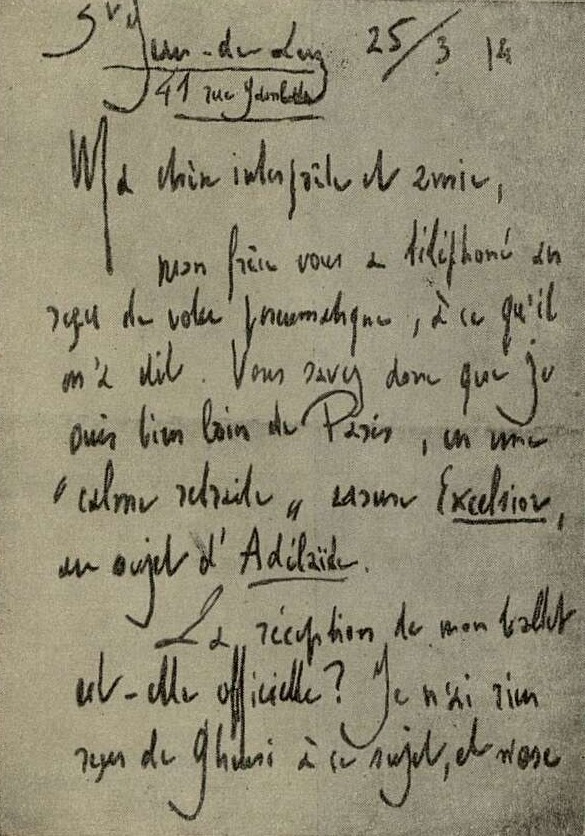 St Jean-de-Luz 25/3 14
41 rue Gambetta
Ma chère interprète et amie,
mon frère vous a téléphoné au
reçu de votre pneumatique, à ce qu'il
m'a dit. Vous savez donc que je
suis bien loin de Paris, en une
"calme retraite" assure Excelsior,
au sujet d'Adélaïde.
La réception de mon ballet
est-elle officielle? Je n'ai rien
reçu de Gheusi à ce sujet, et n'ose